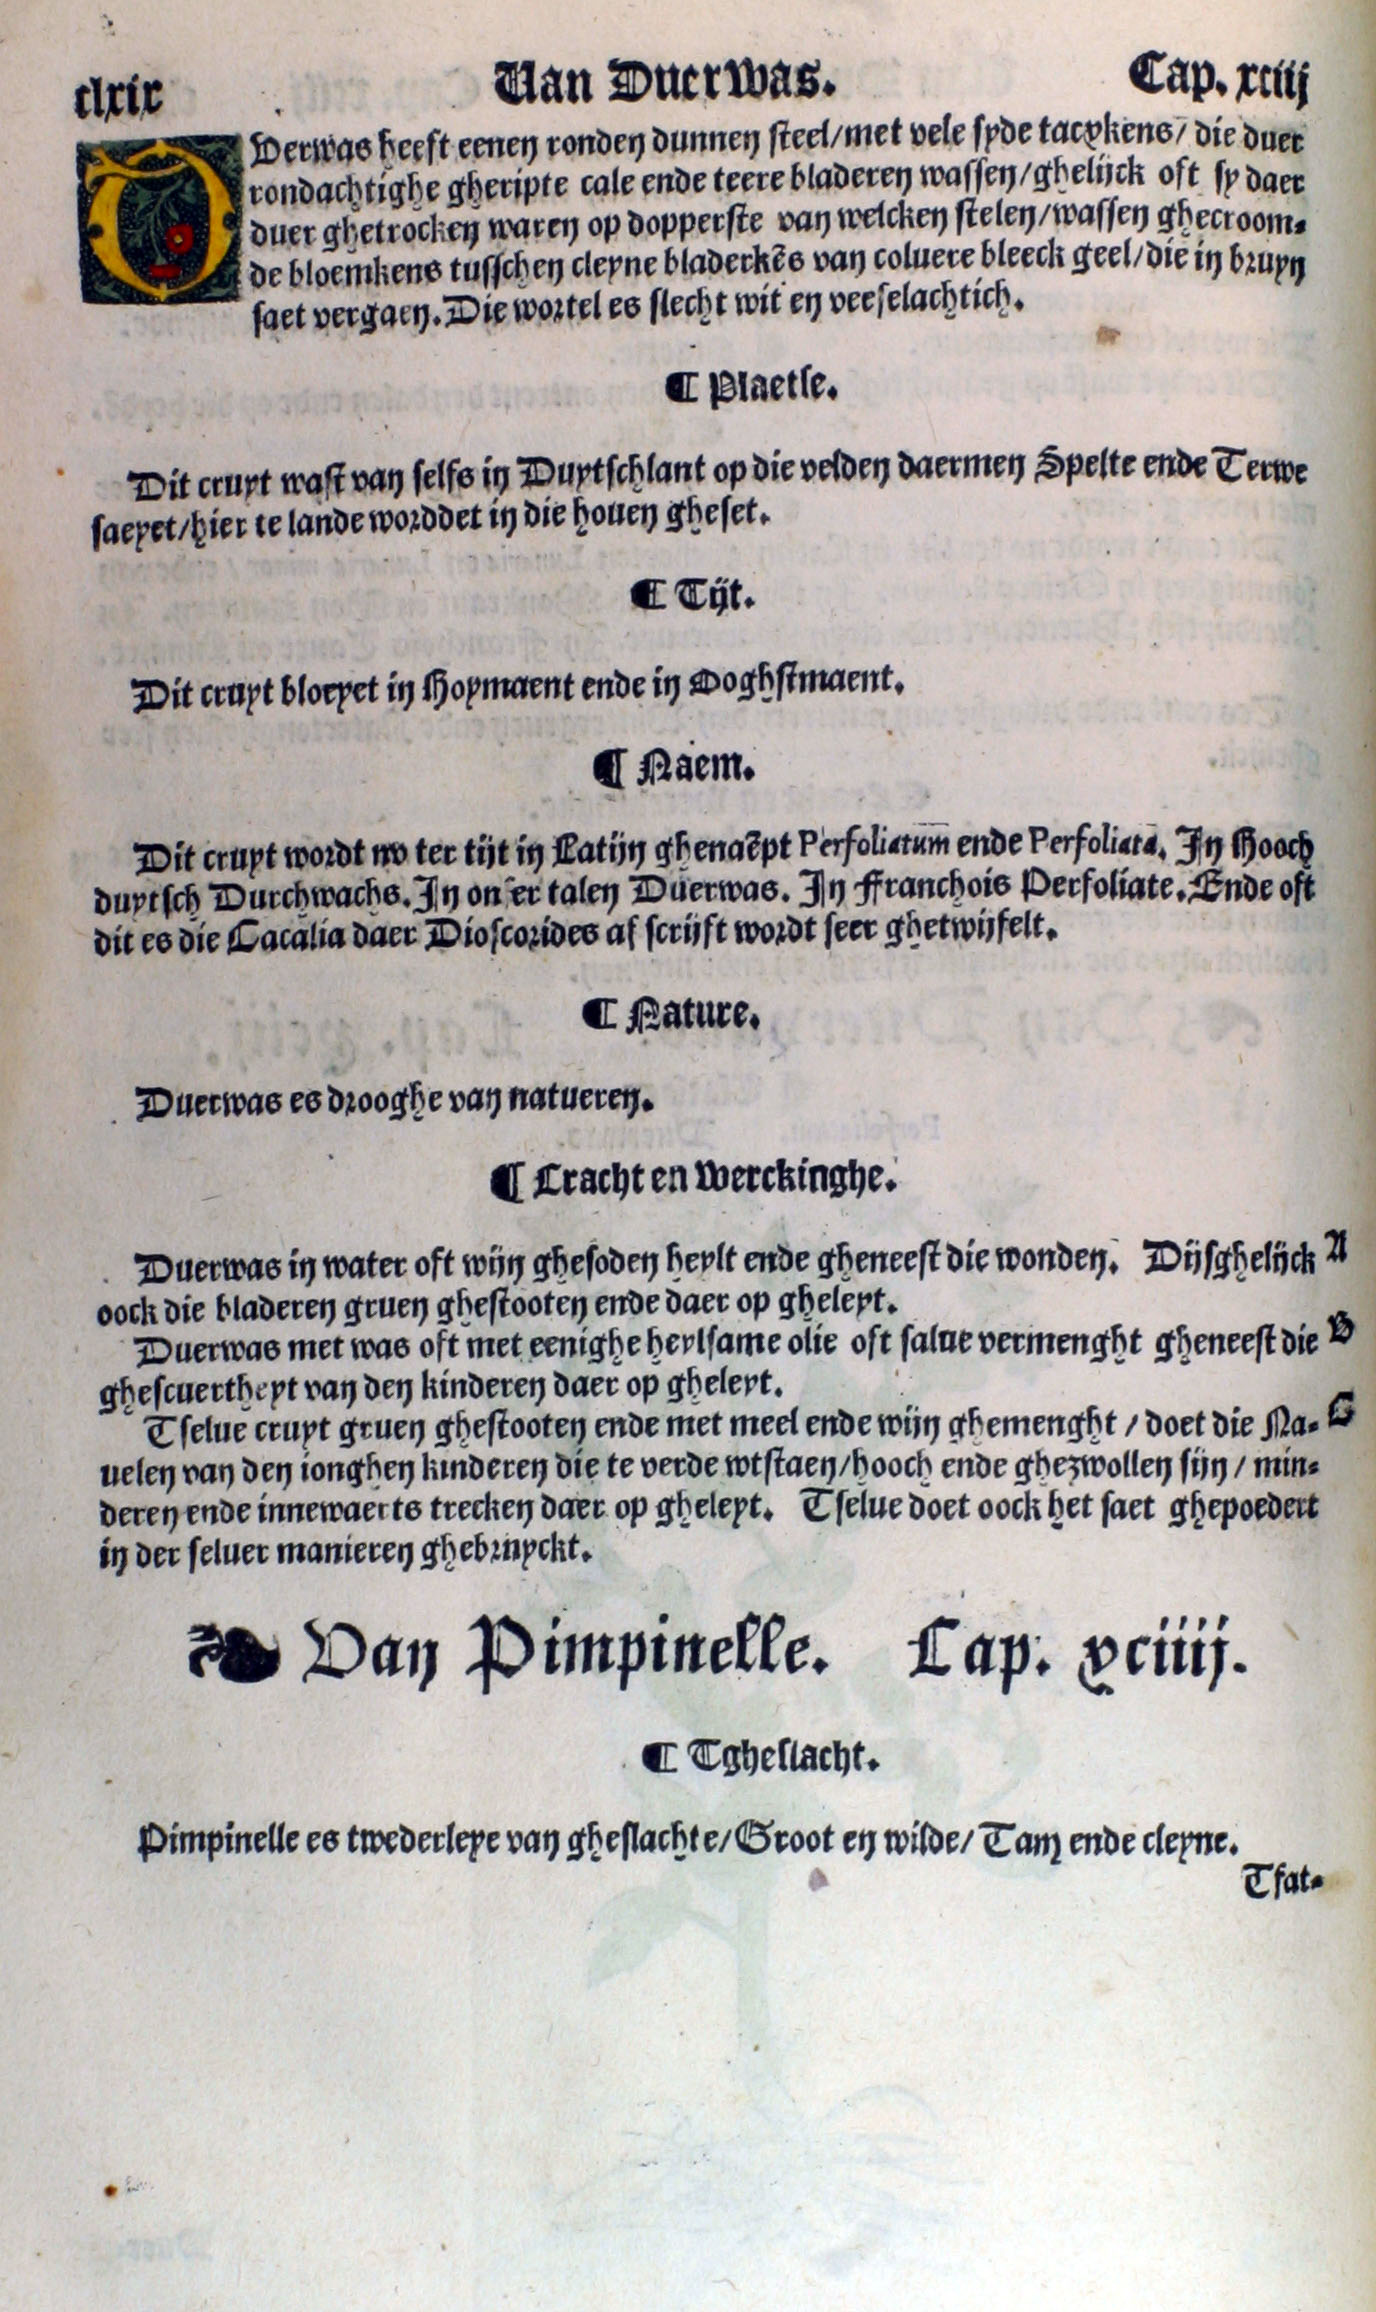 clxix Van Duerwas. Cap. xciij
DVerwas heeft eenen ronden dunnen steel/met vele syde tacxkens/ die duer
rondachtighe gheripte cale ende teere bladeren wassen/ghelijck oft sy daer
duer ghetrocken waren op dopperste van welcken stelen/wassen ghecroom-
de bloemkens tusschen cleyne bladerkēs van coluere bleeck geel/die in bruyn
saet vergaen. Die wortel es slecht wit en veeselachtich.
¶ Plaetse.
Dit cruyt wast van selfs in Duytschlant op die velden daermen Spelte ende Terwe
saeyet/hier te lande worddet in die houen gheset.
¶ Tijt.
Dit cruyt bloeyet in Hoymaent ende in Ooghstmaent.
¶ Naem.
Dit cruyt wordt nv ter tijt in Latijn ghenaēpt Perfoliatum ende Perfoliata. In Hooch
duytsch Durchwachs. In onser talen Duerwas. In Franchois Perfoliate. Ende oft
dit es die Cacalia daer Dioscorides af scrijft wordt seer ghetwijfelt.
¶ Nature.
Duerwas es drooghe van natueren.
¶ Cracht en Werckinghe.
Duerwas in water oft wijn ghesoden heylt ende gheneest die wonden. Dijsghelijck A
oock die bladeren gruen ghestooten ende daer op gheleyt.
Duerwas met was oft met eenighe heylsame olie oft salue vermenght gheneest die B
ghescuertheyt van den kinderen daer op gheleyt.
Tselue cruyt gruen ghestooten ende met meel ende wijn ghemenght / doet die Na- C
uelen van den ionghen kinderen die te verde wtstaen/hooch ende ghezwollen sijn / min-
deren ende innewaerts trecken daer op gheleyt. Tselue doet oock het saet ghepoedert
in der seluer manieren ghebruyckt.
Van Pimpinelle. Cap. xciiij.
¶ Tgheslacht.
Pimpinelle es twederleye van gheslachte/Groot en wilde/ Tam ende cleyne.
Tfat-